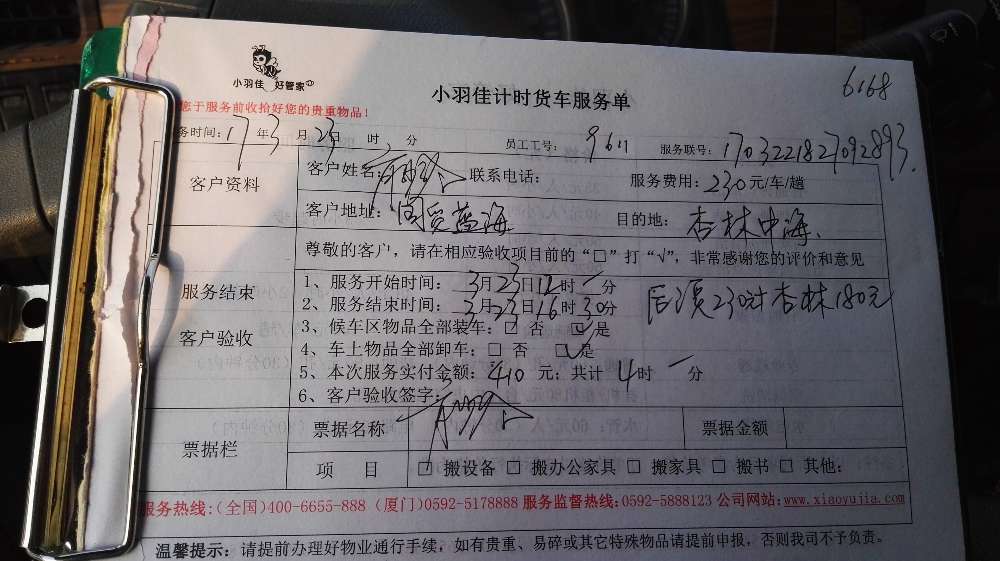 小羽佳 好管家
小羽佳计时货车服务单
6168
您于服务前收拾好您的贵重物品！
务时间：17年3月23日 时 分 员工工号：9611 服务联号：1703221827092893
客户资料
客户姓名： 联系电话： 服务费用：230元/车/趟
客户地址： 蓝海 目的地：杏林中海
尊敬的客户，请在相应验收项目前的“□”打“√”，非常感谢您的评价和意见
服务结束
客户验收
1、服务开始时间：3月23日12时一分
2、服务结束时间：3月23日16时30分
3、候车区物品全部装车：□ 否 ☑是
4、车上物品全部卸车：□ 否 ☑是
5、本次服务实付金额：410元；共计4时一分
6、客户验收签字：
后溪230元 杏林180元
票据栏
票据名称 票据金额
项 目 □ 搬设备 □ 搬办公家具 □ 搬家具 □ 搬书 □ 其他：
服务热线:(全国)400-6655-888 (厦门)0592-5178888 服务监督热线:0592-5888123 公司网站:www.xiaoyujia.com
温馨提示：请提前办理好物业通行手续，如有贵重、易碎或其它特殊物品请提前申报，否则我司不予负责。